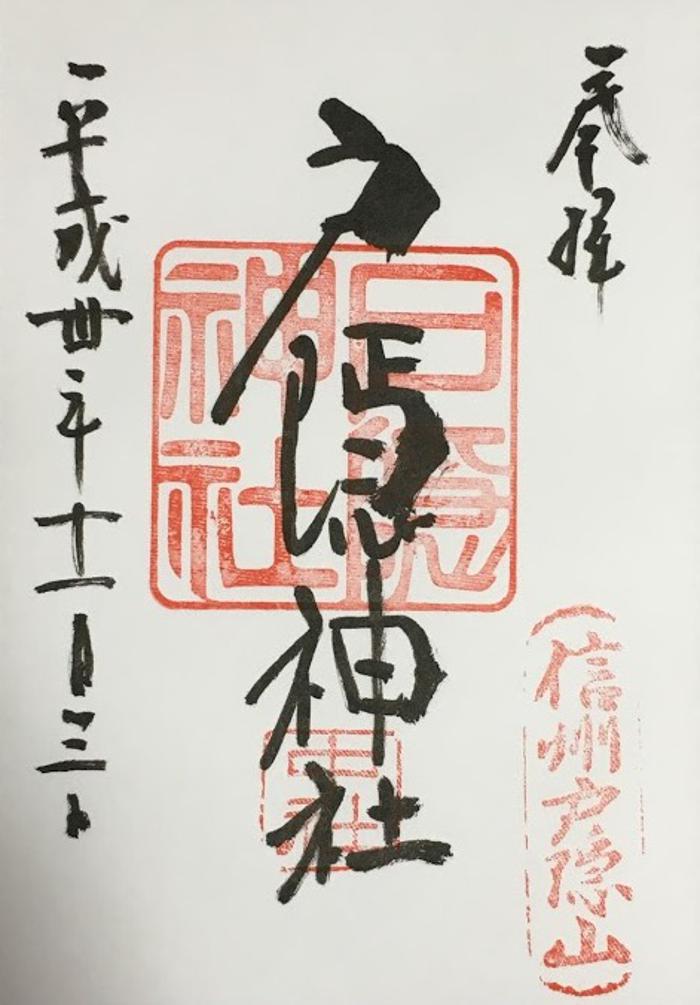 奉拝
信州戸隠山
戸隠神社
戸隠神社
中社
平成卅年十一月三日